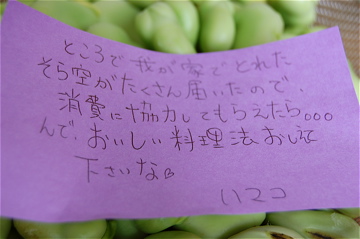 ところで我が家でとれた
そら空がたくさん届いたので、
消費に協力してもらえたら。。。
んで、おいしい料理法おしえて
下さいな
ハマコ